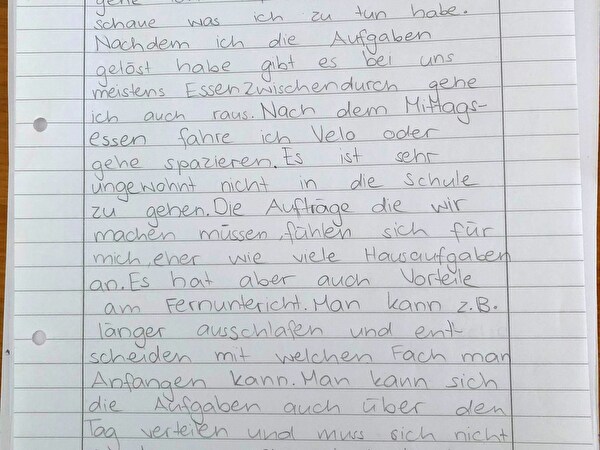 schaue was ich zu tun habe.
Nachdem ich die Aufgaben
gelöst habe gibt es bei uns
meistens Essen.Zwischendurch gehe
ich auch raus. Nach dem Mittags-
essen fahre ich Velo oder
gehe spazieren. Es ist sehr
ungewohnt nicht in die Schule
zu gehen. Die Aufträge die wir
machen müssen, fühlen sich für
mich, eher wie viele Hausaufgaben
an. Es hat aber auch Vorteile
am Fernuntericht. Man kann z.B.
länger ausschlafen und ent-
scheiden mit welchen Fach man
Anfangen kann. Man kann sich
die Aufgaben auch über den
Tag verteilen und muss sich nicht